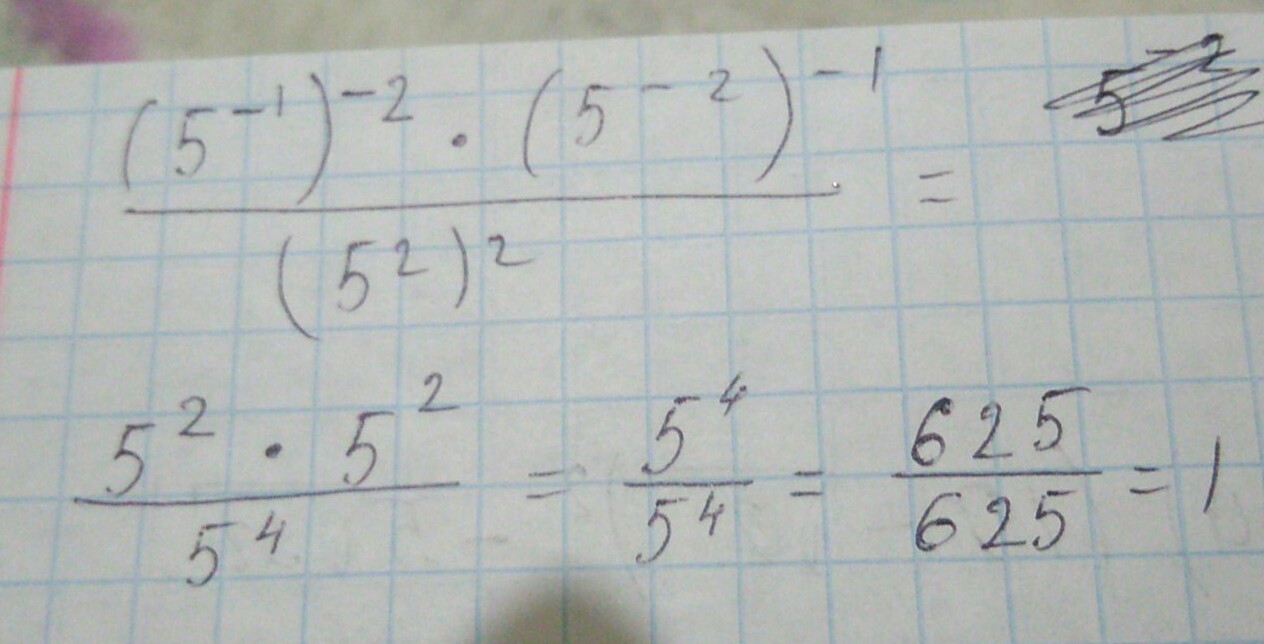 \frac{(5^{-1})^{-2} \cdot (5^{-2})^{-1}}{(5^2)^2} =
\frac{5^2 \cdot 5^2}{5^4} = \frac{5^4}{5^4} = \frac{625}{625} = 1